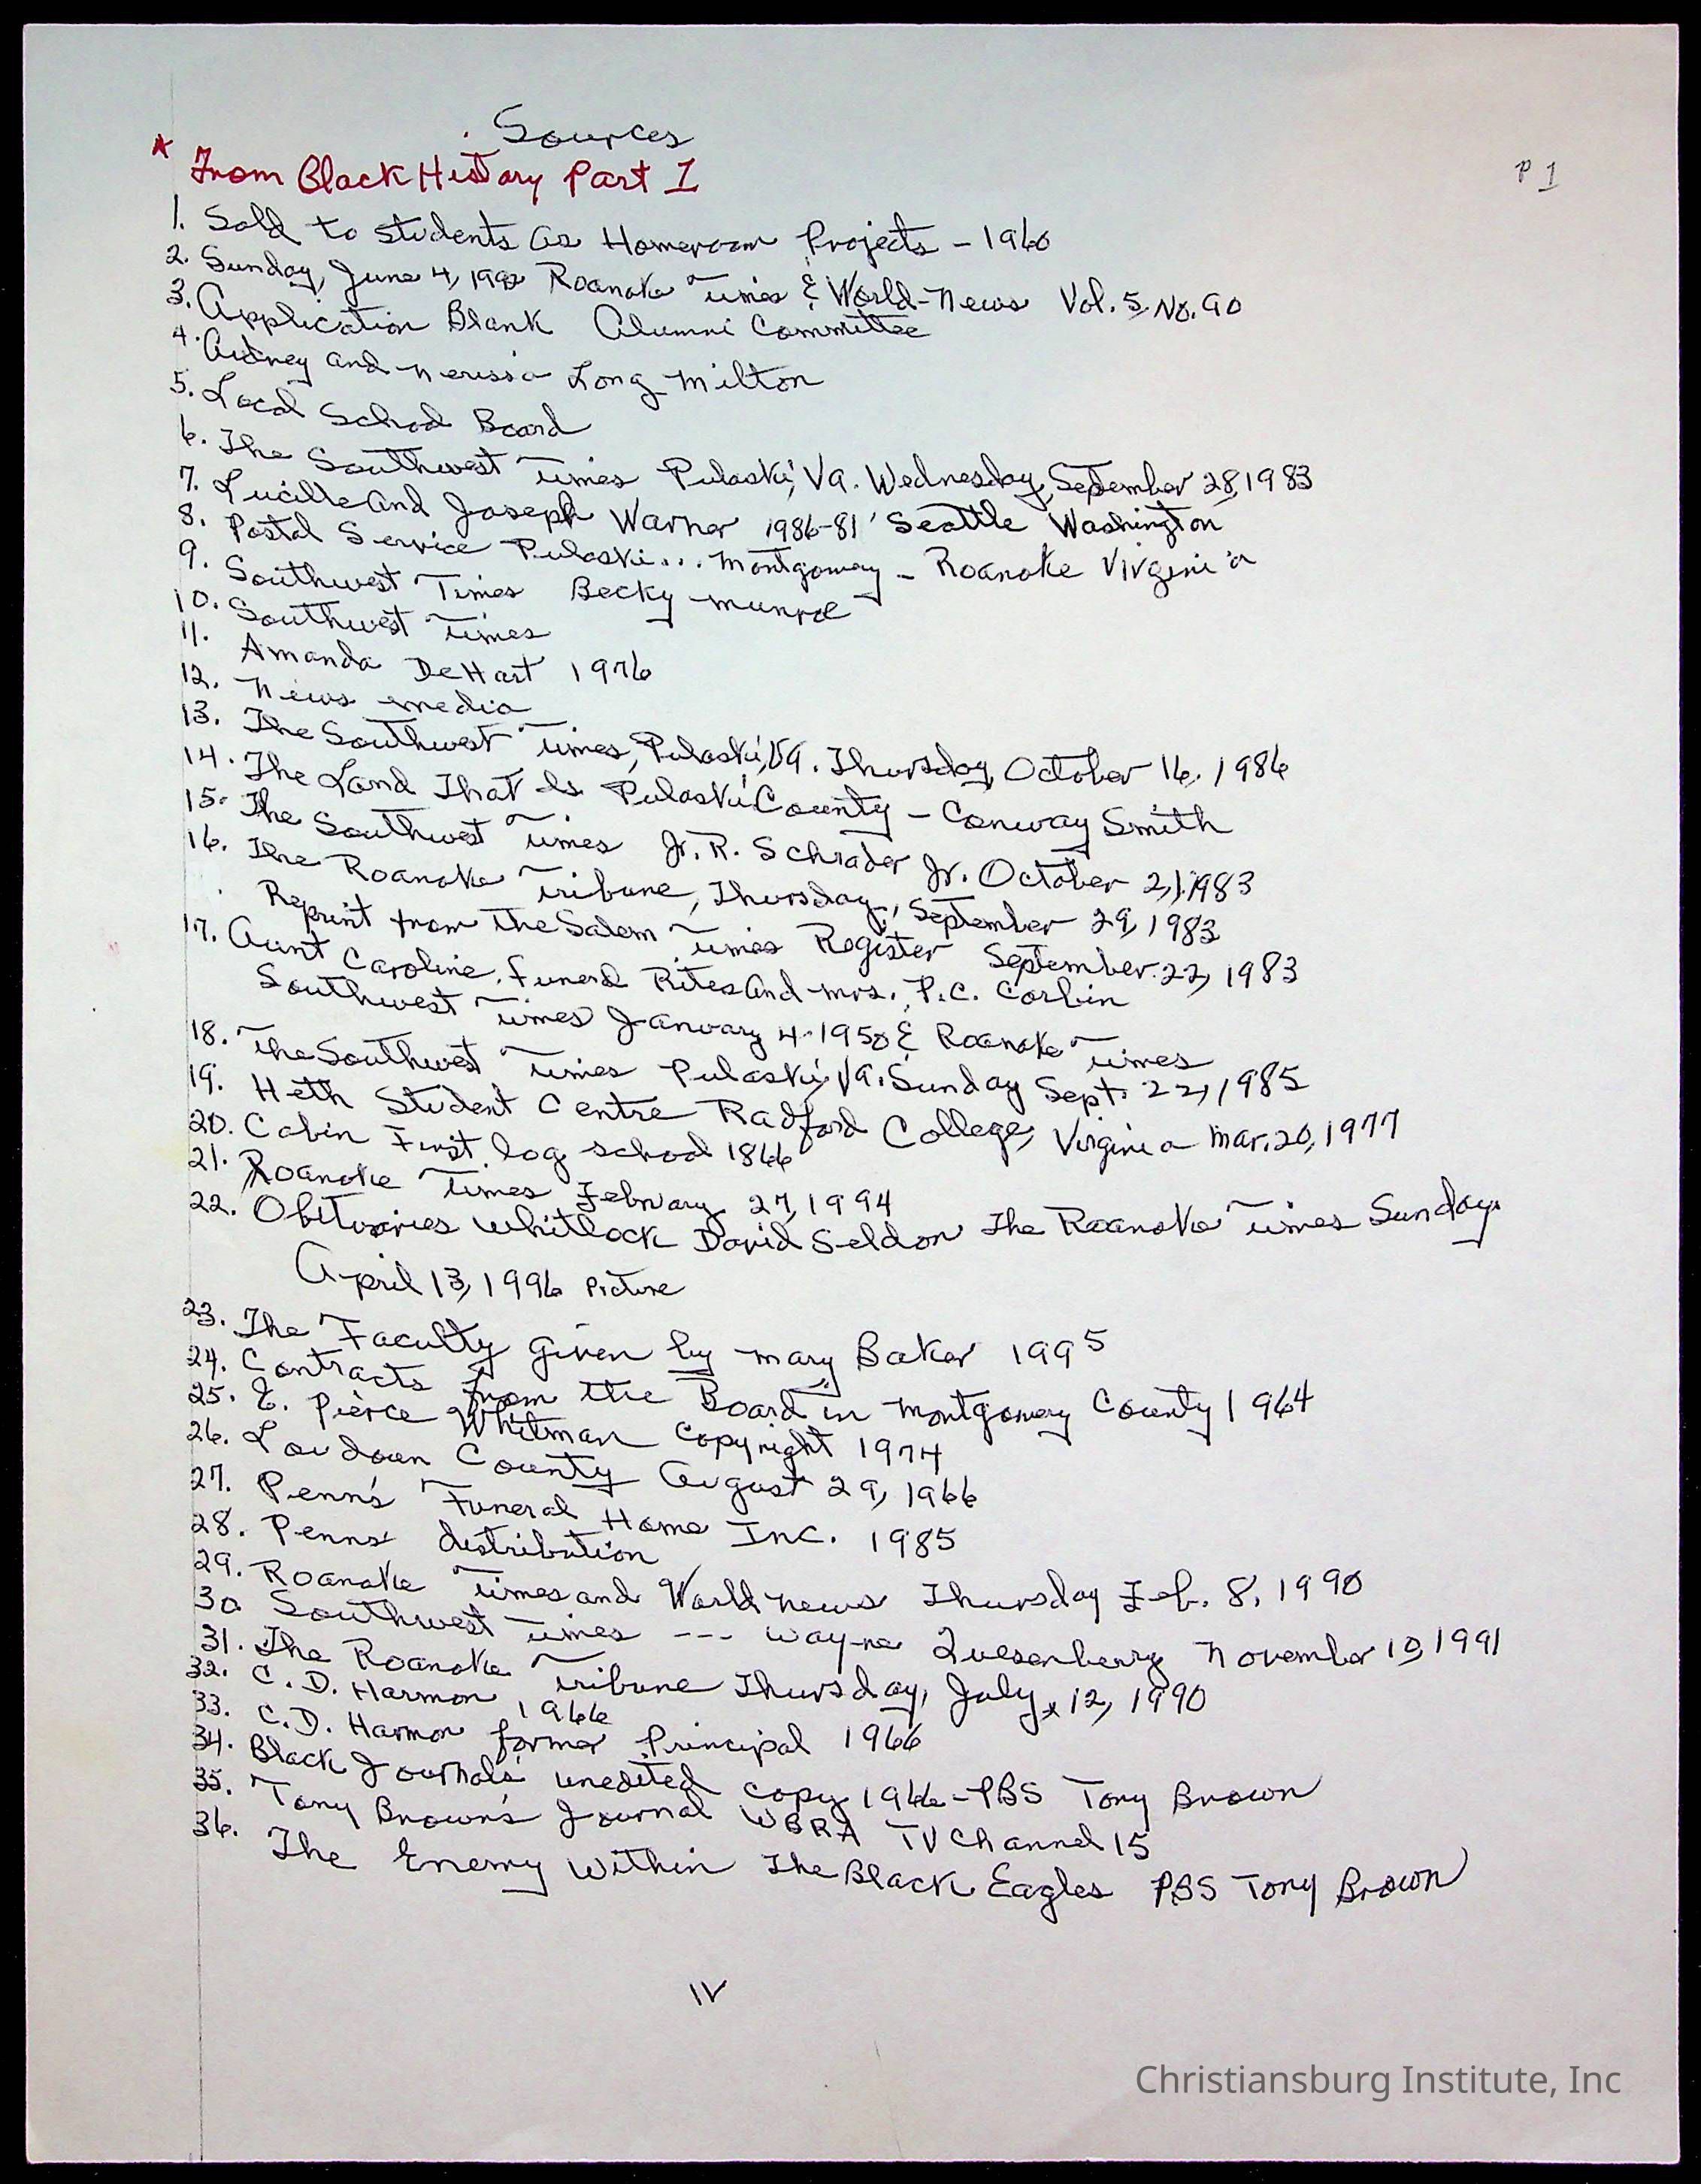 Sources
* From Black History Part I
P 1
1. Sold to students as Homeroom Projects - 1960
2. Sunday, June 4, 1990 Roanoke Times & World-News Vol. 5, No. 90
3. Application Blank Alumni Committee
4. Autney and Nerissa Long Milton
5. Local School Board
6. The Southwest Times Pulaski, Va. Wednesday, September 28, 1983
7. Lucille and Joseph Warner 1986-81 Seattle Washington
8. Postal Service Pulaski... Montgomery - Roanoke Virginia
9. Southwest Times Becky Munroe
10. Southwest Times
11. Amanda DeHart 1976
12. News media
13. The Southwest Times, Pulaski, Va. Thursday, October 16, 1986
14. The Land That Is Pulaski County - Conway Smith
15. The Southwest Times Jr. R. Schrader Jr. October 2, 1983
16. The Roanoke Tribune, Thursday, September 29, 1983
Reprint from The Salem Times Register September 22, 1983
17. Aunt Caroline, Funeral Rites and Mrs. P.C. Corbin
Southwest Times January 4, 1950 & Roanoke Times
18. The Southwest Times Pulaski, Va. Sunday Sept. 22, 1985
19. Heth Student Centre Radford College, Virginia Mar. 20, 1977
20. Cabin First log school 1866
21. Roanoke Times February 27, 1994
22. Obituaries Whitlock David Seldon The Roanoke Times Sunday
April 13, 1996 Picture
23. The Faculty given by Mary Baker 1995
24. Contracts from the Board in Montgomery County 1964
25. E. Pierce Whitman Copyright 1974
26. Loudoun County August 29, 1966
27. Penn's Funeral Home Inc. 1985
28. Penns' distribution
29. Roanoke Times and World News Thursday Feb. 8, 1990
30 Southwest Times --- Wayne Quesenberry November 10, 1991
31. The Roanoke Tribune Thursday, July, 12, 1990
32. C.D. Harmon 1966
33. C.D. Harmon former Principal 1966
34. Black Journals' unedited copy 1966-PBS Tony Brown
35. Tony Brown's Journal WBRA TV Channel 15
36. The Enemy Within The Black Eagles PBS Tony Brown
IV
Christiansburg Institute, Inc